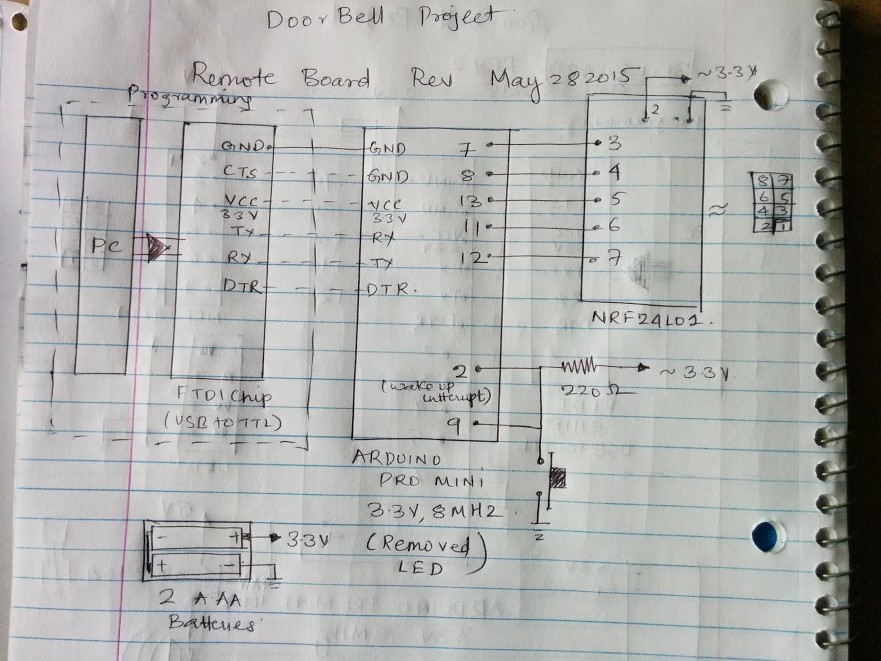 DoorBell Project
Remote Board Rev May 28 2015
Programming
PC
GND
CTS
VCC
3 3 V
Tx
RX
DTR
FTDI Chip
(USB to TTL)
GND
GND
VCC
3 3 V
RX
TX
DTR.
7
8
13
11
12
2
(wake up
intterupt)
9
ARDUINO
PRO MINI
3.3V, 8MHZ
(Removed)
LED
~3.3V
2
3
4
5
6
7
NRF24L01.
≈
8 7
6 5
4 3
2 1
220Ω
~ 3.3V.
- +
+ -
3.3V
2 AAA
Batteries